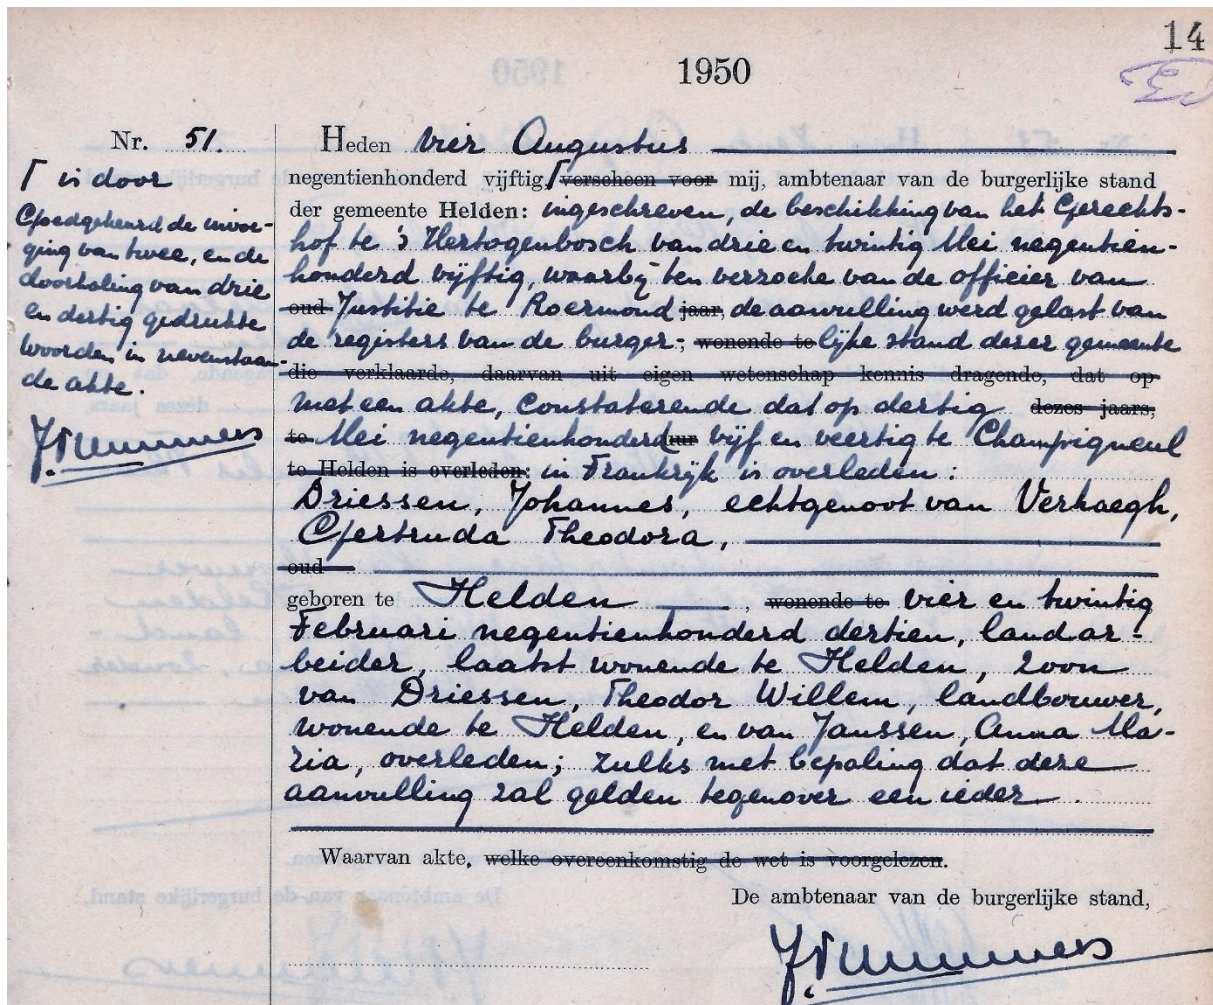 14
1950
Nr. 51.
⌈ is door
Goedgekeurd de invoe-
ging van twee, en de
doorhaling van drie
en dertig gedrukte
woorden in nevenstaan-
de akte.
Heden vier Augustus
negentienhonderd vijftig, ⌈ verscheen voor mij, ambtenaar van de burgerlijke stand
der gemeente Helden: ingeschreven, de beschikking van het Gerechts-
hof te 's Hertogenbosch van drie en twintig Mei negentien-
honderd vijftig, waarbij ten verzoeke van de officier van
oud Justitie te Roermond jaar, de aanvulling werd gelast van
de registers van de burger-, wonende te lijke stand dezer gemeente
die verklaarde, daarvan uit eigen wetenschap kennis dragende, dat op
met een akte, constaterende dat op dertig dezes jaars,
te Mei negentienhonderd uur vijf en veertig te Champigneul
te Helden is overleden: in Frankrijk is overleden:
Driessen, Johannes, echtgenoot van Verhaegh,
Gertruda Theodora,
oud
geboren te Helden, wonende te vier en twintig
Februari negentienhonderd dertien, landar-
beider, laatst wonende te Helden, zoon
van Driessen, Theodor Willem, landbouwer,
wonende te Helden, en van Janssen, Anna Ma-
ria, overleden; zulks met bepaling dat deze
aanvulling zal gelden tegenover een ieder.
Waarvan akte, welke overeenkomstig de wet is voorgelezen.
De ambtenaar van de burgerlijke stand,